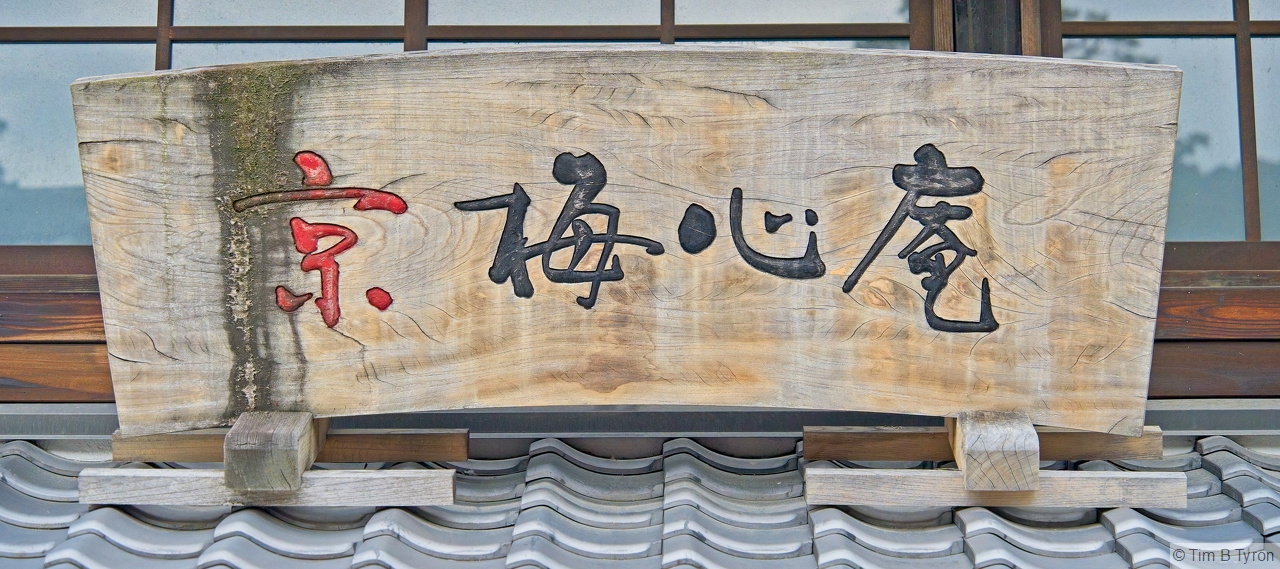 京 梅心庵
© Tim B Tyron